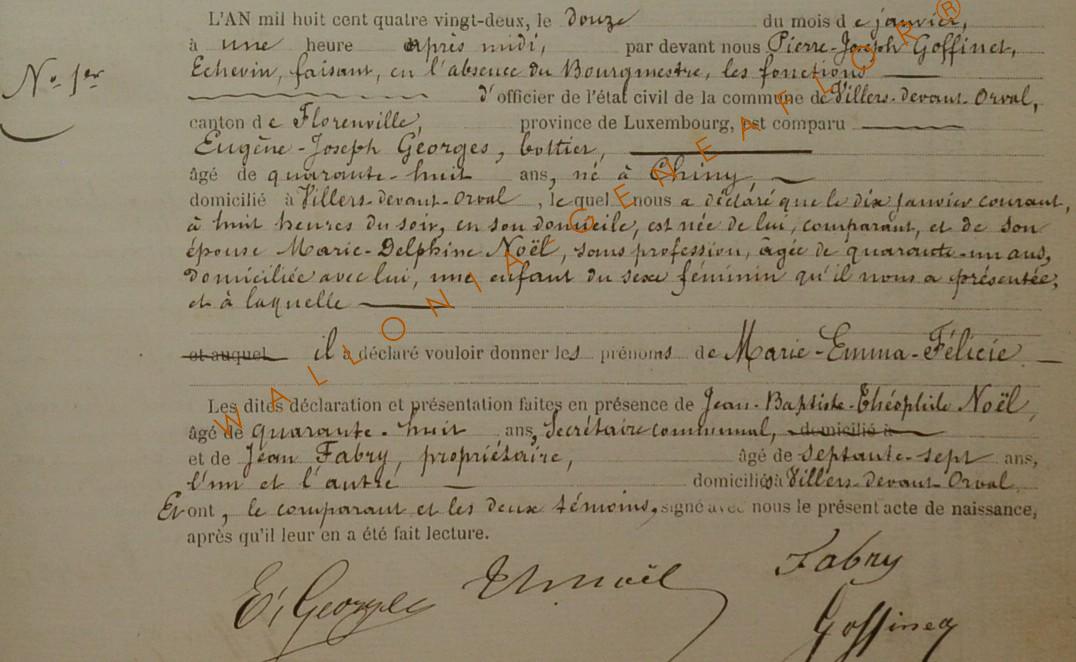 L'AN mil huit cent quatre vingt-deux, le douze du mois de janvier,
à une heure après midi, par devant nous Pierre-Joseph Goffinet,
Echevin, faisant, en l'absence du Bourgmestre, les fonctions
N° 1er
d'officier de l'état civil de la commune de Villers-devant-Orval,
canton de Florenville, province de Luxembourg, est comparu
Eugène-Joseph Georges, bottier,
âgé de quarante-huit ans, né à Chiny,
domicilié à Villers-devant-Orval, lequel nous a déclaré que le dix janvier courant,
à huit heures du soir, en son domicile, est née de lui, comparant, et de son
épouse Marie-Delphine Noël, sans profession, âgée de quarante-un ans,
domiciliée avec lui, une enfant du sexe féminin qu'il nous a présentée,
et à laquelle
et auquel il a déclaré vouloir donner les prénoms de Marie-Emma-Félicie
Les dites déclaration et présentation faites en présence de Jean-Baptiste-Théophile Noël,
âgé de quarante-huit ans, Secrétaire communal, domicilié à
et de Jean Fabry, propriétaire, âgé de septante-sept ans,
l'un et l'autre domiciliés à Villers-devant-Orval
Et ont, le comparant et les deux témoins, signé avec nous le présent acte de naissance,
après qu'il leur en a été fait lecture.
E. Georges Th Noël Fabry
Goffinet
WALLONIA GENEAFLOR®